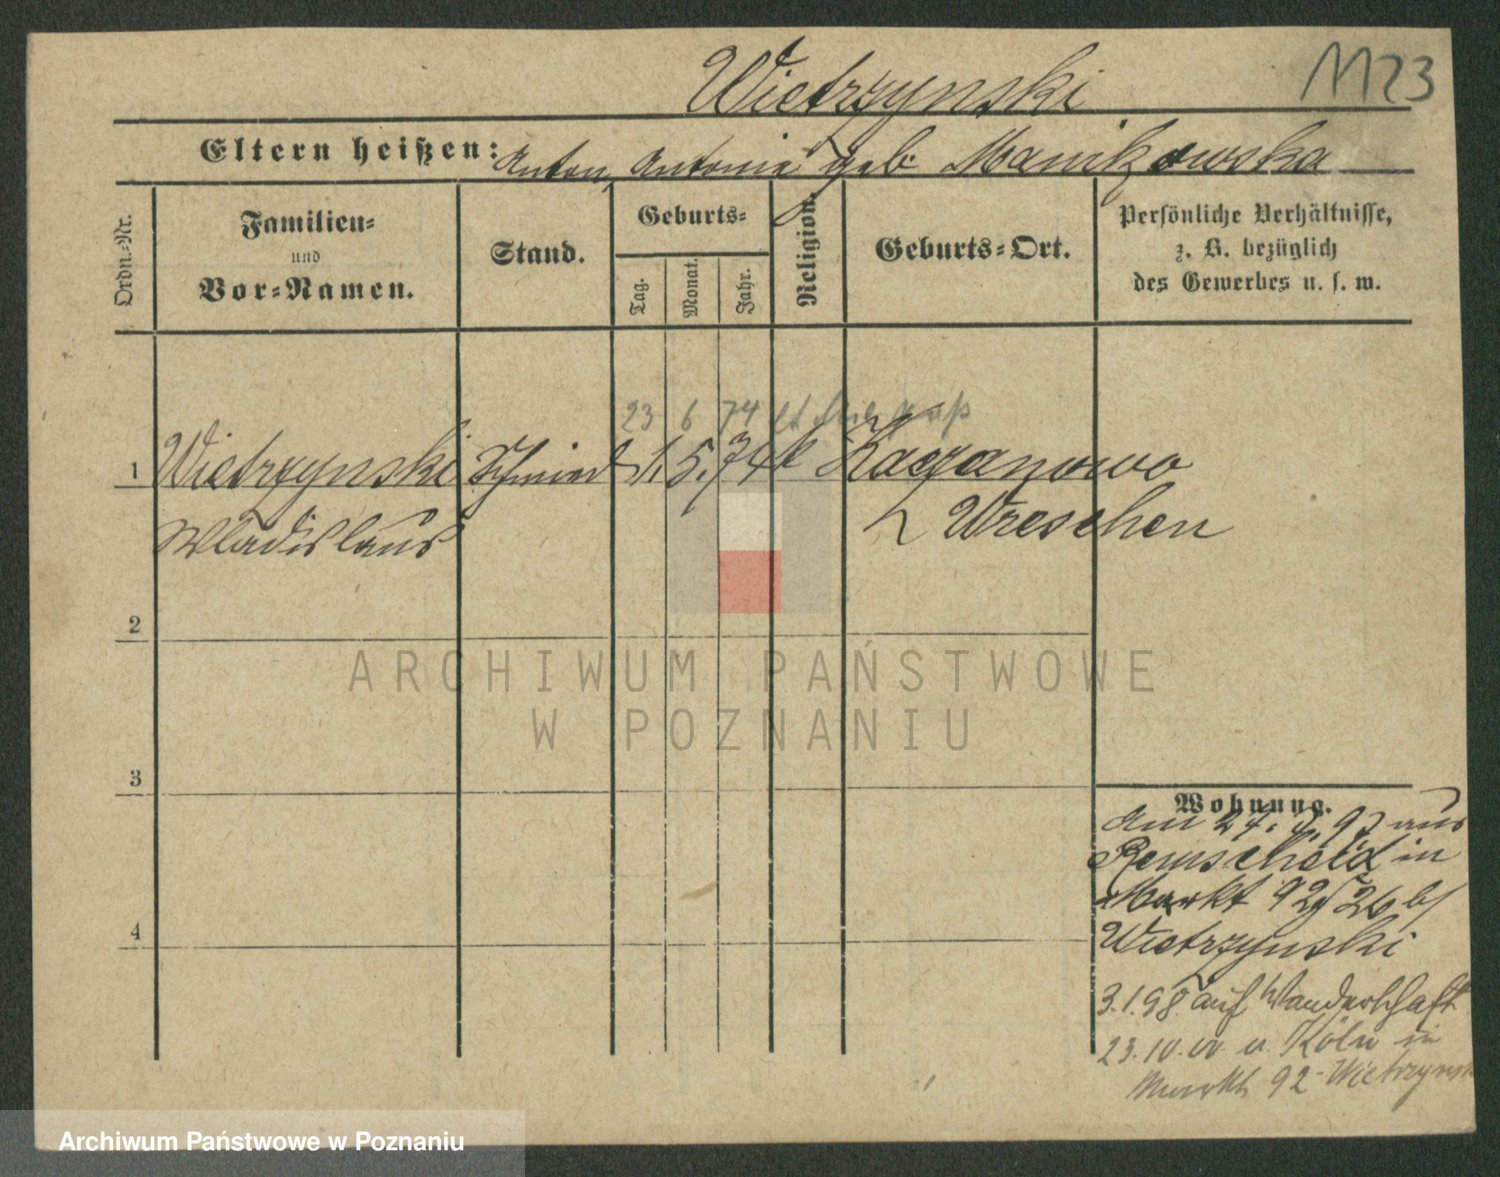 Wietrzynski
1123
Eltern heißen: Anton, Antonie geb. Manikowska
Ordn.-Nr.
Familien-
und
Vor-Namen.
Stand.
Geburts-
Tag.
Monat.
Jahr.
Religion.
Geburts-Ort.
Persönliche Verhältnisse,
z. B. bezüglich
des Gewerbes u. s. w.
23 6 74
1 Wietrzynski Schmied 1. 5. 74 k Kaczanowo
Wladislaus
Wreschen
2
3
4
Wohnung.
Am 27. 97 aus
Remscheid in
Markt 92 b/
Wietrzynski
3.1.98 auf Wanderschaft
23.10.00 v. Köln in
Markt 92 Wietrzynski
ARCHIWUM PAŃSTWOWE
W POZNANIU
Archiwum Państwowe w Poznaniu